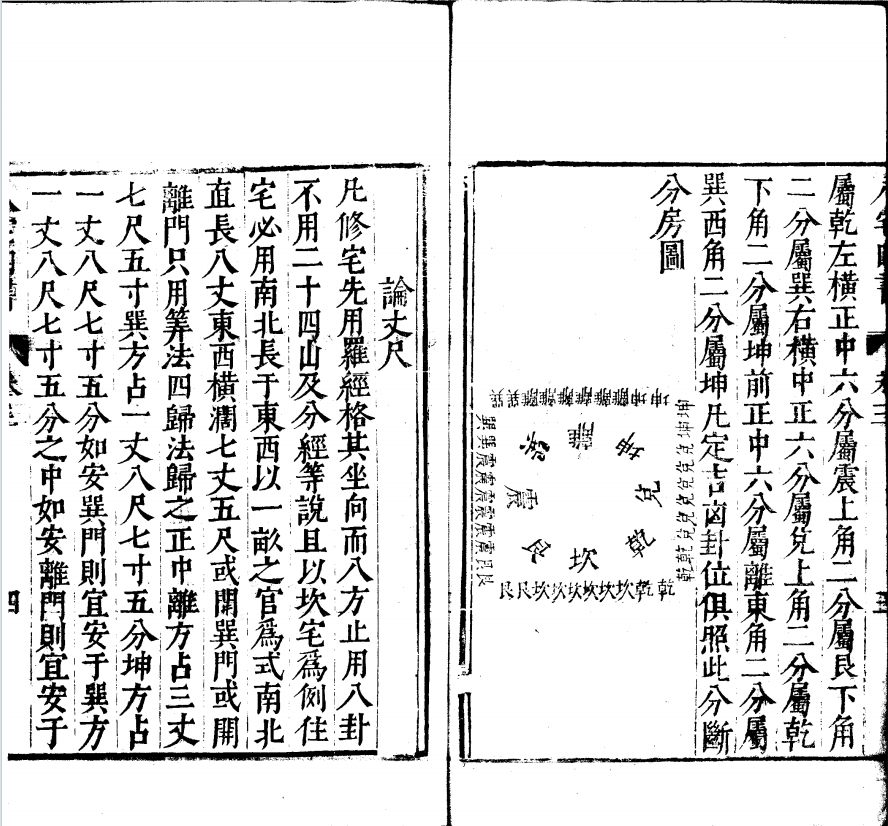 屬乾左橫正中六分屬震上角二分屬艮下角
二分屬巽右橫中正六分屬兌上角二分屬乾
下角二分屬坤前正中六分屬離東角二分屬
巽西角二分屬坤凡定吉凶卦位俱照此分斷
分房圖
坤坤離離離離離離巽巽
坤坤兌兌兌兌兌兌乾乾
巽巽震震震震震震艮艮
離
坤
兌
乾
坎
艮
震
巽
艮艮坎坎坎坎坎坎乾乾
論丈尺
凡修宅先用羅經格其坐向而八方止用八卦
不用二十四山及分經等說且以坎宅爲例住
宅必用南北長于東西以一畝之官爲式南北
直長八丈東西橫濶七丈五尺或開巽門或開
離門只用筭法四歸法歸之正中離方占三丈
七尺五寸巽方占一丈八尺七寸五分坤方占
一丈八尺七寸五分如安巽門則宜安于巽方
一丈八尺七寸五分之中如安離門則宜安于
卷三
四